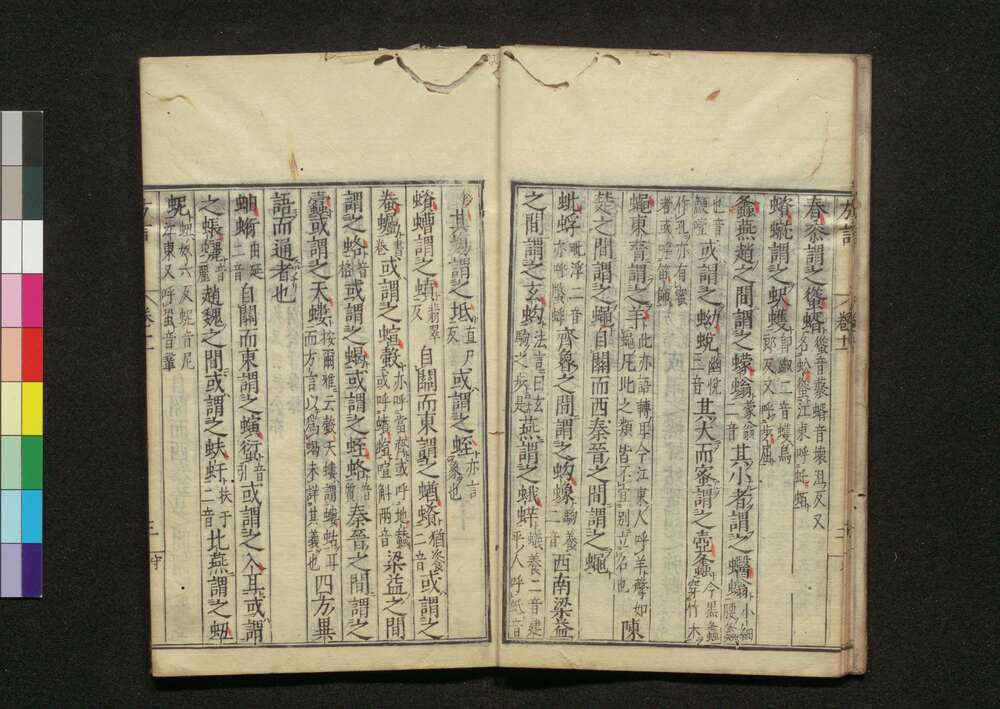 春黍謂之䗥蝑䗥音藂蝑音壞沮反又名蚣䗥江東呼虴蛨
謂之蚇蠖即踧二音蠖烏郭反又呼步屈
蠭燕趙之間謂之蠓螉蒙翁二音其小者謂之蠮螉小細腰蠭
也音鯁噎或謂之蚴蛻幽悅二音其大而蜜謂之壺蠭今黑蠭穿竹木
作孔亦有蜜者或呼笛師
蠅東齊謂之羊此亦語轉耳今江東人呼羊聲如蠅凡此之類皆不宜別立名也陳
楚之間謂之蠅自關而西秦晉之間謂之蠅
蚍蜉毗浮二音亦呼螱蜉齊魯之間謂之蚼蟓駒養二音西南梁益
之間謂之玄蚼法言曰玄駒之步是燕謂之蛾蛘蟻養二音建平人呼蚳音
侈其場謂之坻直尸反或謂之垤亦言冢也
蠀螬謂之蟦翡翠反自關而東謂之蝤蠀猶餈二音或謂之
蠾書卷或謂之蝖螜亦呼當齊或呼地蠶或呼蟦蝖喧斛兩音梁益之間
謂之蛒音格或謂之蝎或謂之蛭蛒音質秦晉之間謂之
蠹或謂之天螻按爾雅云螜天螻謂螻蛄耳而方言以爲蝎未詳其義也四方異
語而通者也
蚰䖻由延二音自關而東謂之螾䗡音引或謂之入耳或謂
之蜄䗍音麗趙魏之間或謂之蚨虶扶于二音北燕謂之蛆
蚭蛆奴六反蚭音尼江東又呼蛩音鞏